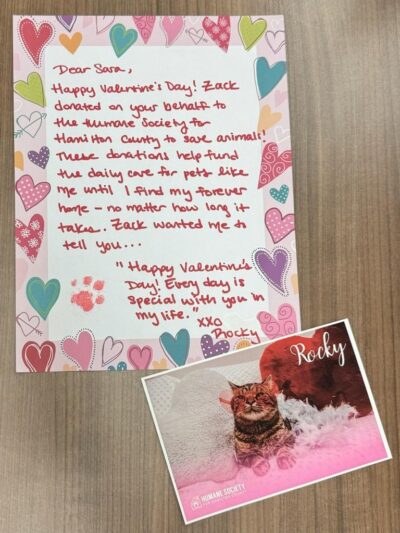 Dear Sara,
Happy Valentine's Day! Zack
donated on your behalf to
the Humane Society for
Hamilton County to save animals!
These donations help fund
the daily care for pets like
me until I find my forever
home - no matter how long it
takes. Zack wanted me to
tell you...
"Happy Valentine's
Day! Every day is
special with you in
my life."
XXO
Rocky
Rocky
HUMANE SOCIETY
FOR HAMILTON COUNTY